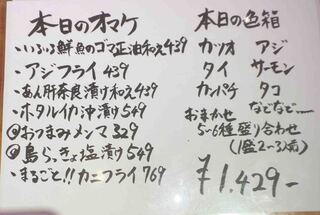 本日のオマケ
・いろいろ鮮魚のゴマ正油和え439
・アジフライ439
・あん肝奈良漬け和え439
・ホタルイカ沖漬け549
◎おつまみメンマ329
◎島らっきょ塩漬け549
・まるごと!!カニフライ769
本日の色箱
カツオ アジ
タイ サーモン
カンパチ タコ
などなど…
おまかせ
5~6種盛り合わせ
(1盛2~3人前)
¥1.429-